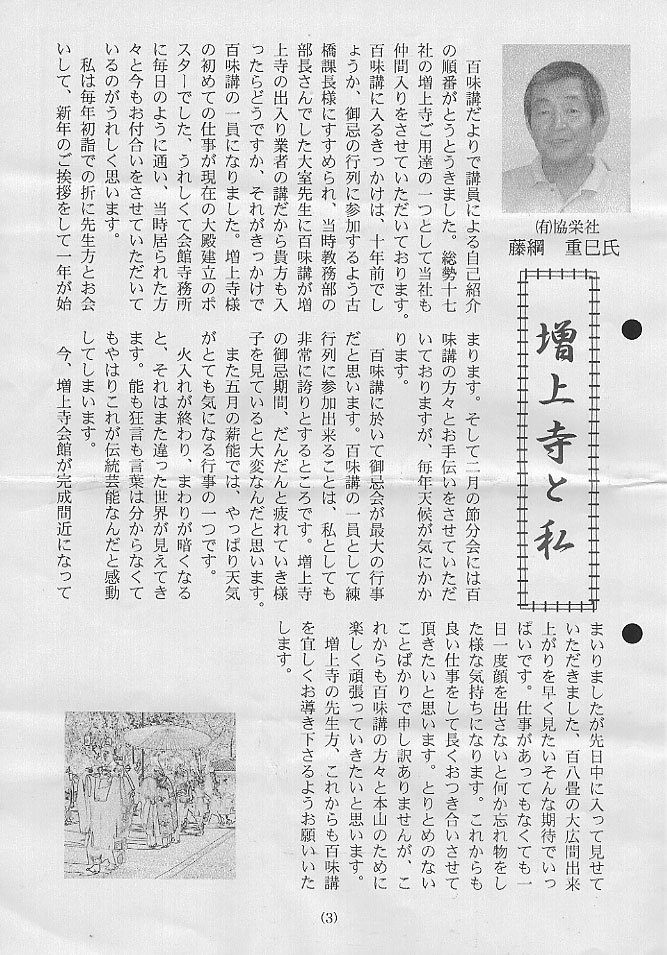 (有)協栄社
藤綱　重巳氏
増上寺と私
百味講だよりで講員による自己紹介
の順番がとうとうきました。総勢十七
社の増上寺ご用達の一つとして当社も
仲間入りをさせていただいております。
百味講に入るきっかけは、十年前でし
ょうか、御忌の行列に参加するよう古
橋課長様にすすめられ、当時教務部の
部長さんでした大室先生に百味講が増
上寺の出入り業者の講だから貴方も入
ったらどうですか、それがきっかけで
百味講の一員になりました。増上寺様
の初めての仕事が現在の大殿建立のポ
スターでした、うれしくて会館寺務所
に毎日のように通い、当時居られた方
々と今もお付合いをさせていただいて
いるのがうれしく思います。
私は毎年初詣での折に先生方とお会
いして、新年のご挨拶をして一年が始
まります。そして二月の節分会には百
味講の方々とお手伝いをさせていただ
いておりますが、毎年天候が気にかか
ります。
百味講に於いて御忌会が最大の行事
だと思います。百味講の一員として練
行列に参加出来ることは、私としても
非常に誇りとするところです。増上寺
の御忌期間、だんだんと疲れていき様
子を見ていると大変なんだと思います。
また五月の薪能では、やっぱり天気
がとても気になる行事の一つです。
火入れが終わり、まわりが暗くなる
と、それはまた違った世界が見えてき
ます。能も狂言も言葉は分からなくて
もやはりこれが伝統芸能なんだと感動
してしまいます。
今、増上寺会館が完成間近になって
まいりましたが先日中に入って見せて
いただきました、百八畳の大広間出来
上がりを早く見たいそんな期待でいっ
ぱいです。仕事があってもなくても一
日一度顔を出さないと何か忘れ物をし
た様な気持ちになります。これからも
良い仕事をして長くおつき合いさせて
頂きたいと思います。とりとめのない
ことばかりで申し訳ありませんが、こ
れからも百味講の方々と本山のために
楽しく頑張っていきたいと思います。
増上寺の先生方、これからも百味講
を宜しくお導き下さるようお願いいた
します。
(3)